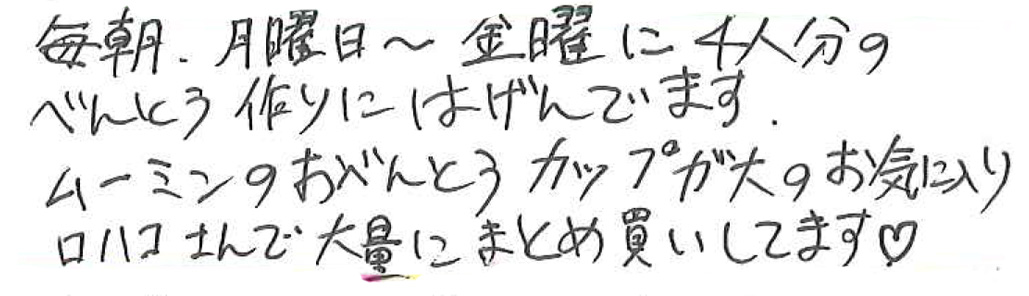 毎朝、月曜日～金曜に4人分の
べんとう作りにはげんでます.
ムーミンのおべんとうカップが大のお気に入り
ロハコさんで大量にまとめ買いしてます♡